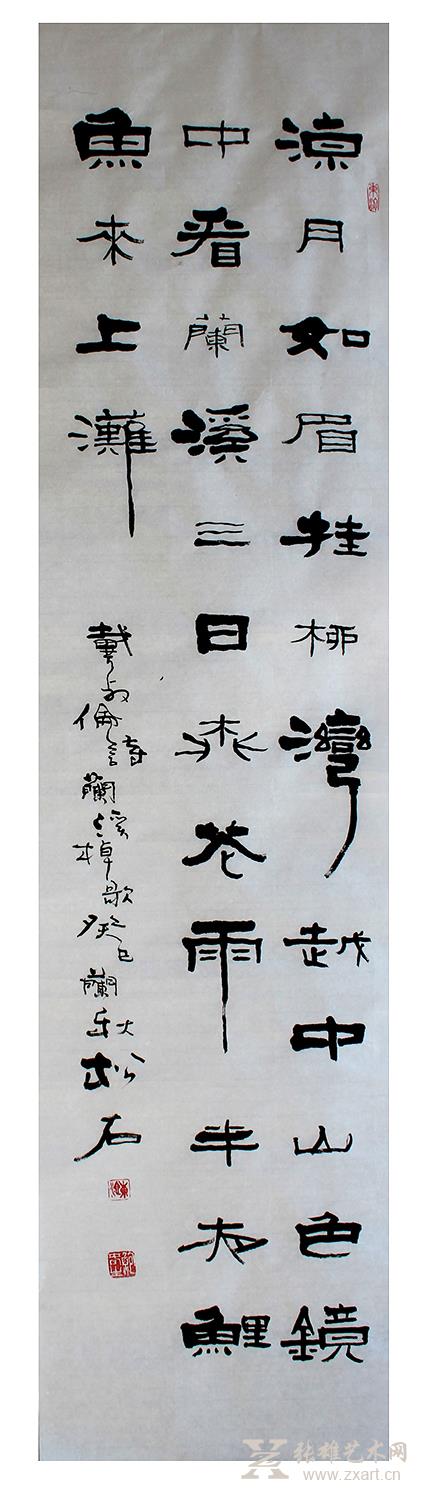 涼月如眉挂柳灣越中山色鏡
中看蘭溪三日桃花雨半夜鯉
魚來上灘
戴叔倫詩蘭溪棹歌癸巳蘭秋松石
张雄艺术网
www.zxart.cn